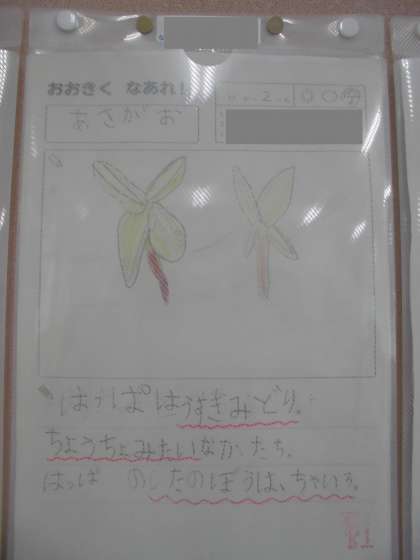 おおきく なあれ!
あさがお
はっぱはうすぎみどり。
ちょうちょみたいなかたち。
はっぱ のしたのほうは、ちゃいろ。